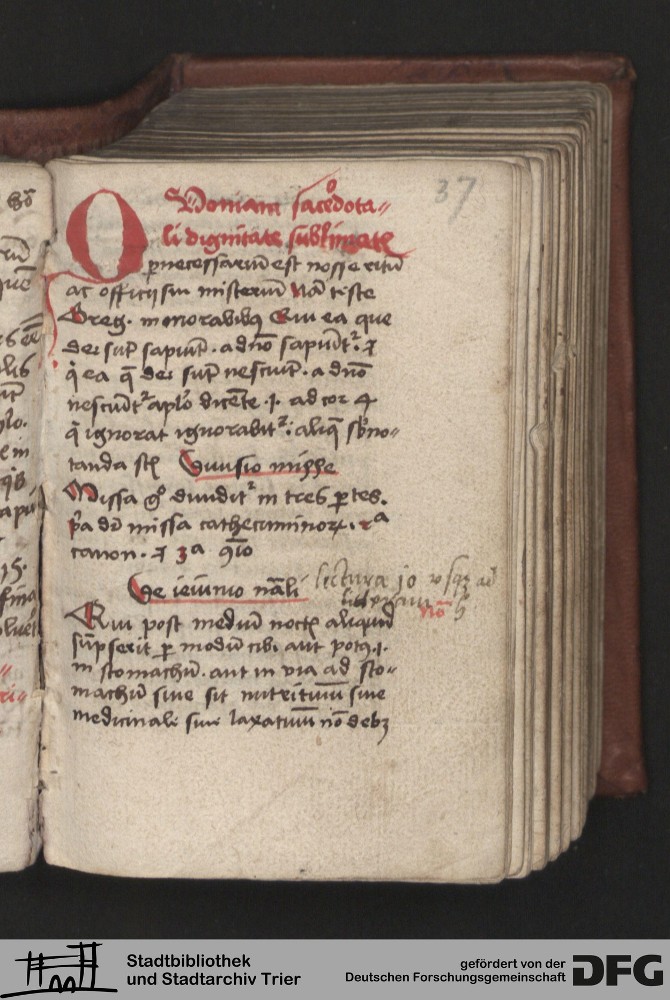 37
Quoniam sacerdota=
li dignitate sublimatis
pernecessariū est nosse ritū
ac officij sui misteriū Nā teste
Greg. in moralibꝰ Qui ea que
dei sūt sapiūt. a dn̄o sapiūtᷣ. ⁊
q̇ ea q̄ dei sūt nesciūt. a dn̄o
nesciūtᷣ apl̄o dicēte .i. ad cor 4
q̇ ignorat ignorabitᷣ: aliq̄
tanda Diuisio misse
Missa gͦ diuiditᷣ in tres ptes.
pͥa dr̄ missa cathecuminoꝝ. 2ᵃ
canon. ⁊ 3ᵃ ꝯ̄io
De ieiunio nāli lectura 10 vsqꝫ ad
Qui post mediū noctis aliquid
sūpserit p modū cibi aut potꝰ .i.
in stomachū. aut in via ad sto=
machū siue sit nutritiuū siue
medicinale siue laxatiuū nō debꝫ
Stadtbibliothek
und Stadtarchiv Trier
gefördert von der
Deutschen Forschungsgemeinschaft
DFG